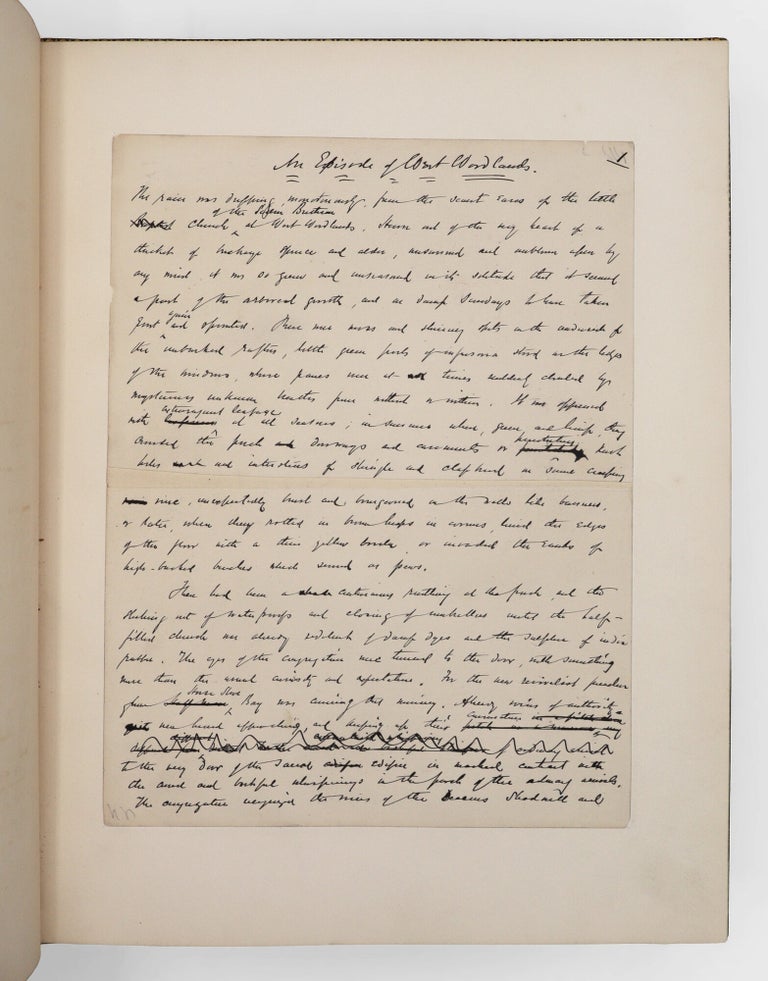 1
An Episode of West Woodlands.
The rain was dripping monotonously from the scant eaves of the little
of the Sidon Brethren
church at West Woodlands. Hewn out of the very heart of a
thicket of buckeye spruce and alder, unsunned and unblown upon by
any wind, it was so green and unseasoned in its solitude that it seemed
a part of the arboreal growth, and on damp Sundays to have taken
again
root and sprouted. There were moss and shining spots on the underside of
the unbarked rafters, little green pools of infusoria stood on the ledge
of the windows, whose panes were at times suddenly clouded by
mysterious unknown breaths from without or within. It was oppressed
extravagant leafage
with at all seasons; in summer, when, green and limp, they
penetrating
crowded the porch doorways and casements or knot
holes and interstices of shingle and clapboard, on some creeping
vine, unexpectedly burst and bourgeoned on the walls like banners;
or later, when they rotted in brown heaps in corners, lined the edges
of the floor with a thin yellow border, or invaded the ranks of
high-backed benches which served as pews.
There had been a continuous rustling at the porch, and the
shaking out of waterproofs and closing of umbrellas until the half-
filled church was already redolent of damp dyes and the sulphur of india
rubber. The eyes of the congregation were turned to the door with something
more than the usual curiosity and expectation. For the new revivalist preacher
Horse Shoe
from Bay was coming that morning. Already voices of authority
were heard approaching, and keeping up their
to the very door of the sacred edifice in marked contrast with
the awed and bashful whisperings in the porch of the ordinary arrivals.
The congregation recognized the voices of the Deacons Shadwell and